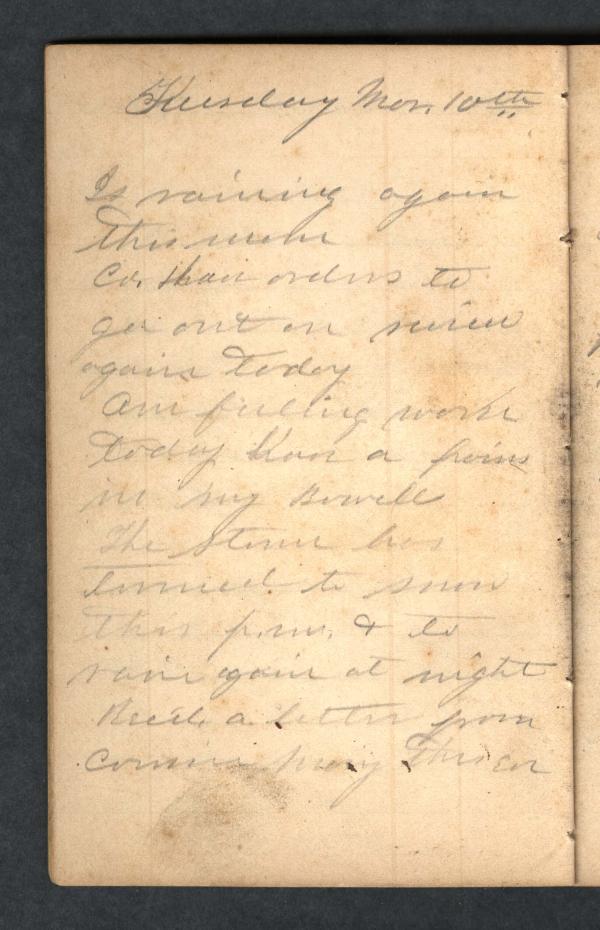 Tuesday Mar. 10th
Is raining again
this morn
Co. has orders to
go out on review
again today
Am feeling worse
today have a pain
in my Bowells
The storm has
turned to snow
this p.m. & to
rain again at night
Recd. a letter from
Cousin Mary this eve